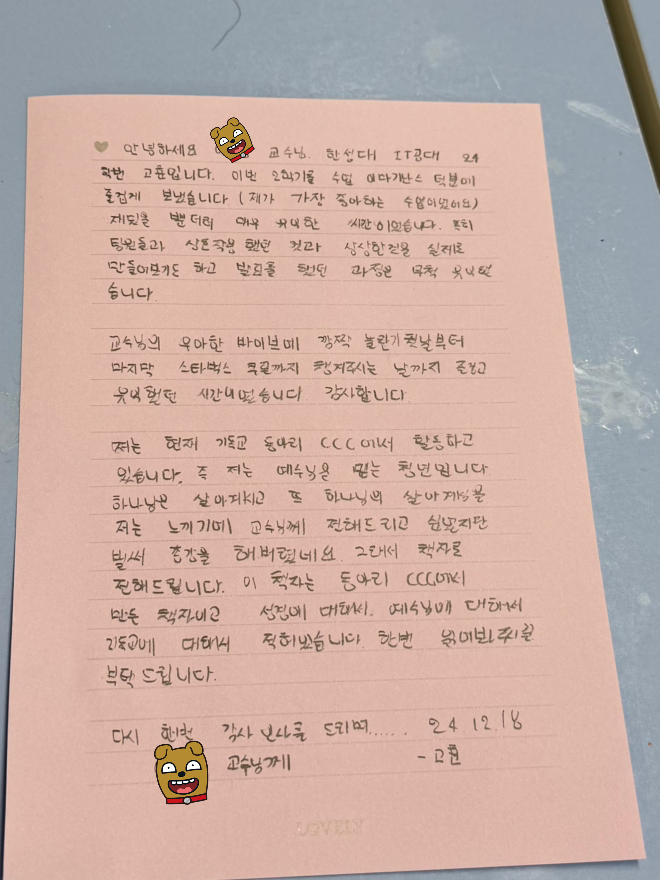 안녕하세요 교수님. 한성대 IT공대 24
학번 고훈입니다. 이번 2학기를 수업 덕분에
즐겁게 보냈습니다 (제가 가장 좋아하는 수업이었어요)
재밌을 뿐더러 매우 유익한 시간이었습니다. 특히
팀원들과 상호작용 했던 것과 상상한것을 실제로
만들어보기도 하고 발표를 했던 과정은 무척 유익했
습니다.
교수님의 우아한 바이브에 깜짝 놀란 첫날부터
마지막 스타벅스 쿠폰까지 챙겨주시는 날까지 즐겁고
유익했던 시간이었습니다 감사합니다
저는 현재 기독교 동아리 CCC에서 활동하고
있습니다. 즉 저는 예수님을 믿는 청년입니다
하나님은 살아계시고 또 하나님의 살아계심을
저는 느끼기에 교수님께 전해드리고 싶었지만
벌써 종강을 해버렸네요 그래서 책자로
전해드립니다. 이 책자는 동아리 CCC에서
만든 책자이고 성경에 대해서. 예수님에 대해서
기독교에 대해서 적혀있습니다. 한번 읽어봐주시길
부탁 드립니다.
다시 한번 감사 인사를 드리며...... 24.12.18
교수님께 - 고훈
LOVELY